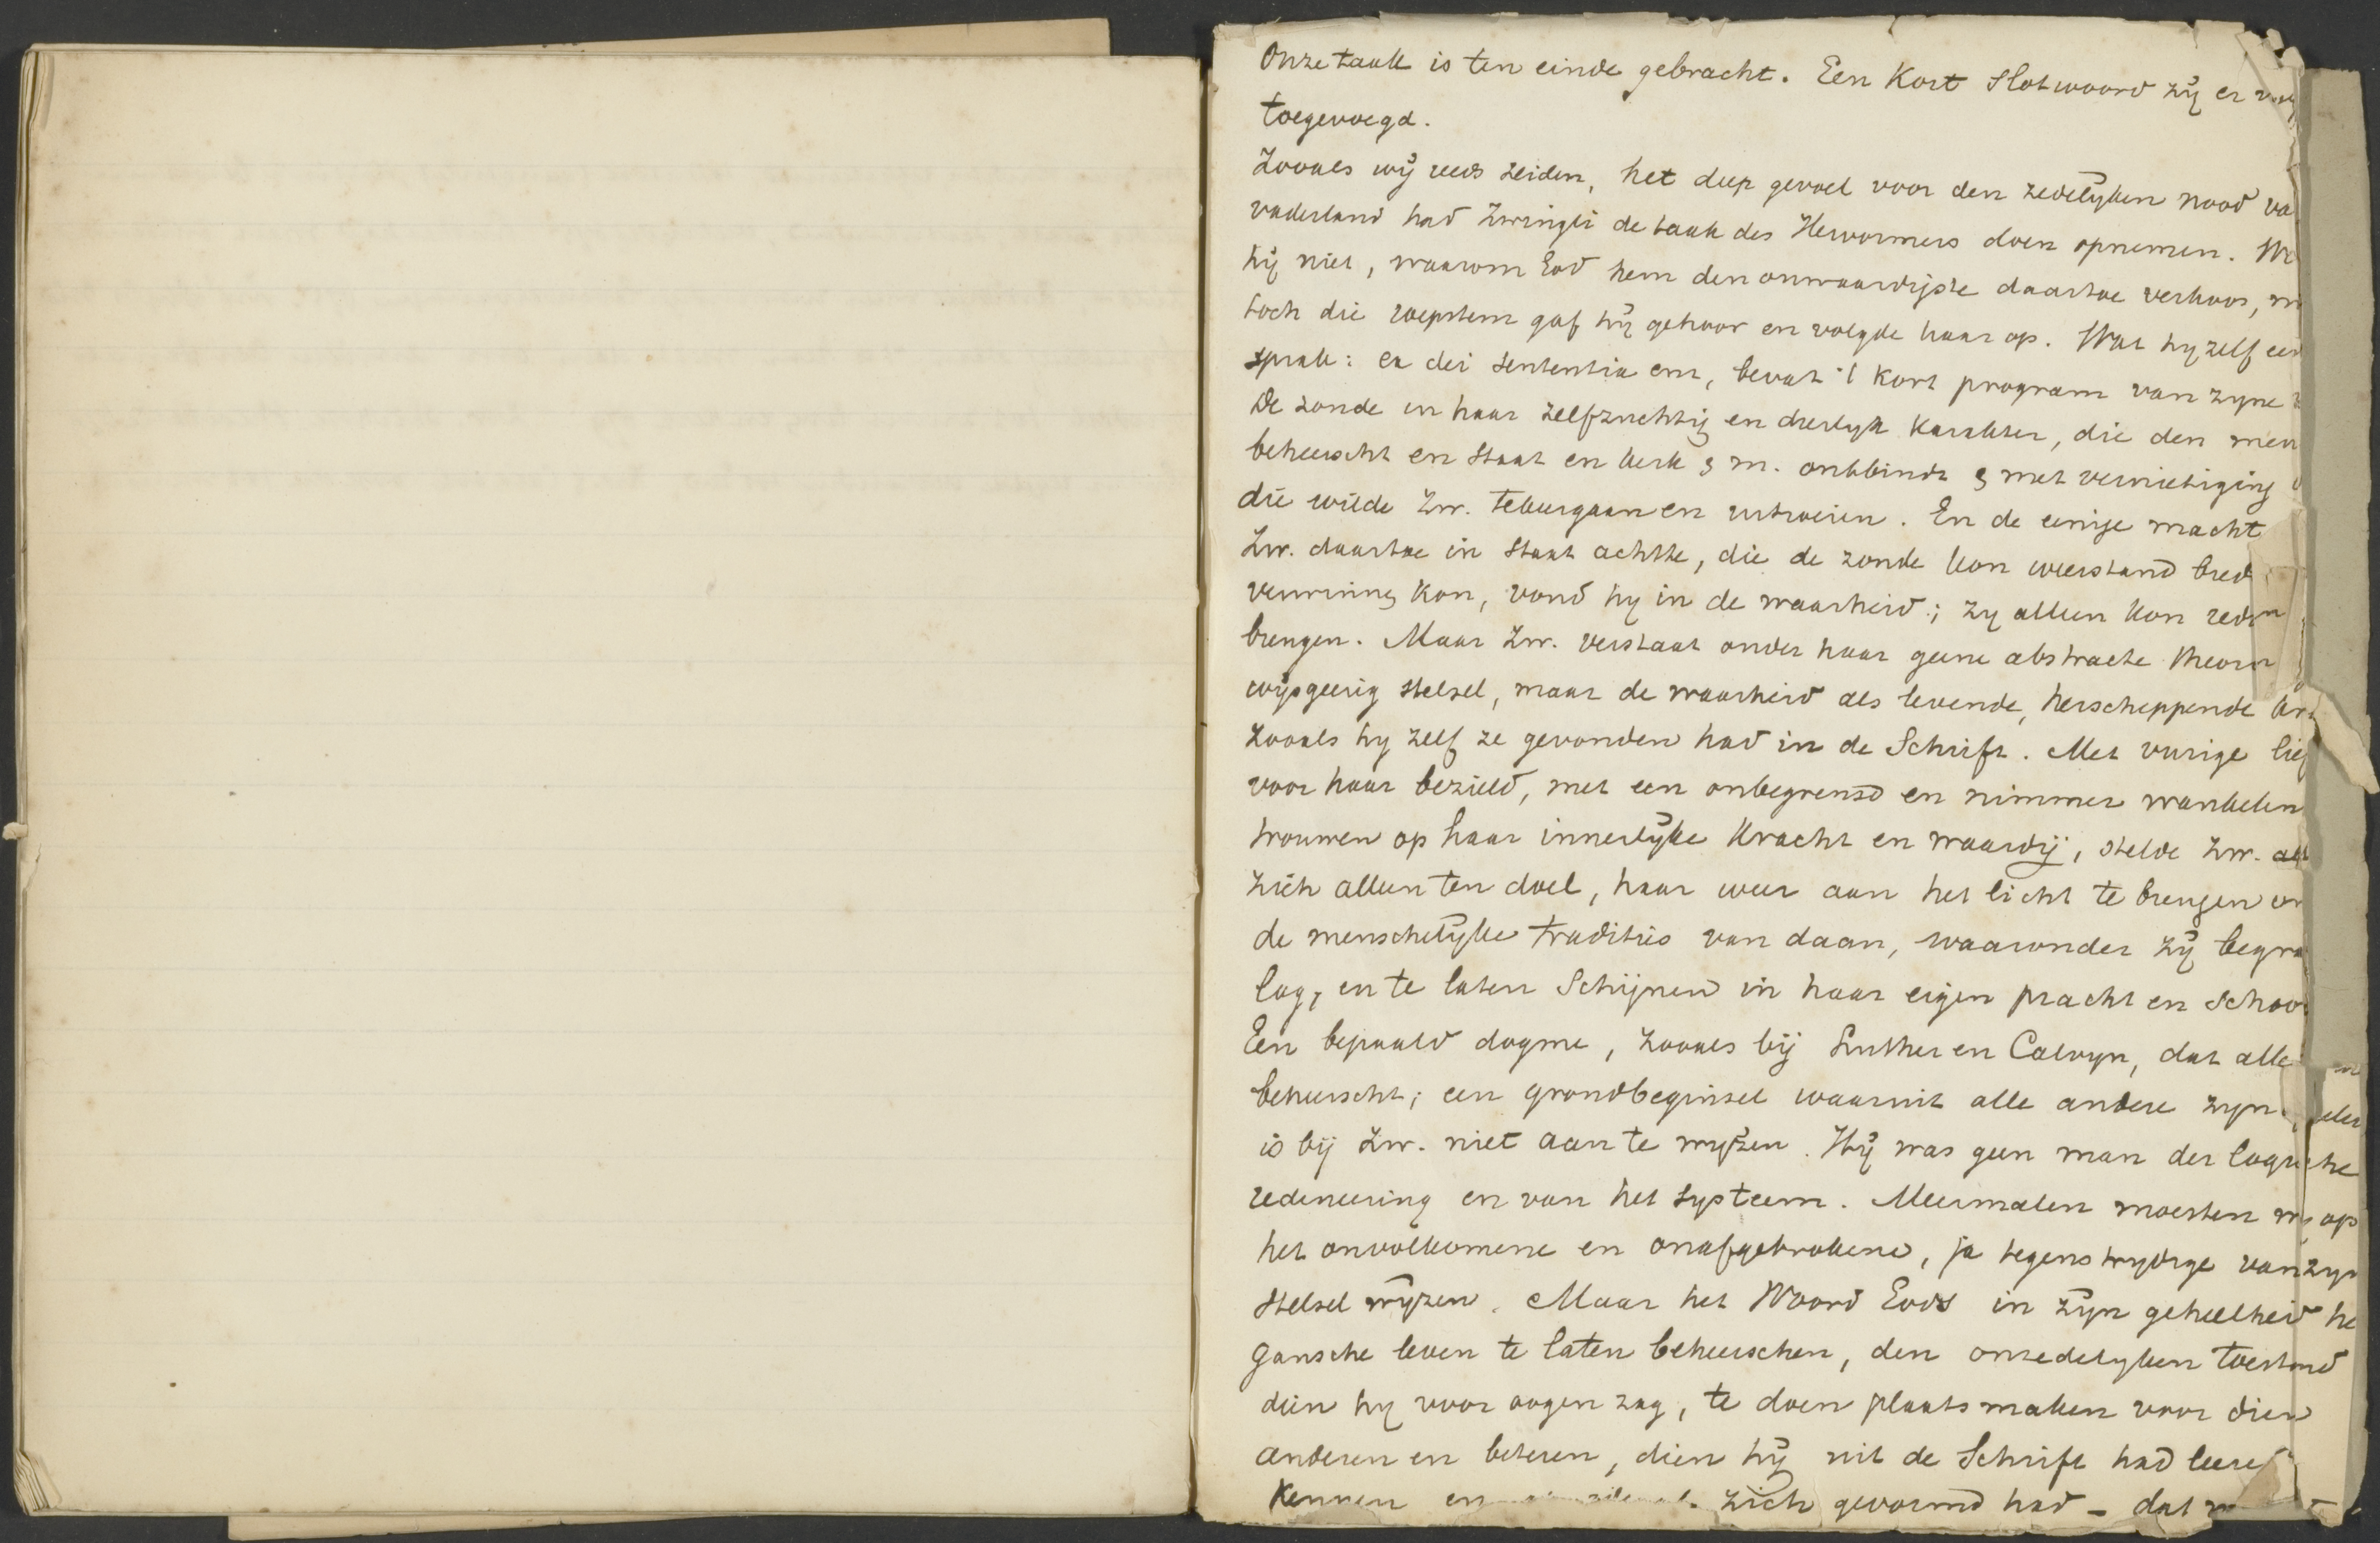 Onze taak is ten einde gebracht. Een Kort Slotwoord zij er
toegevoegd.
Zooals wij reeds zeiden, het diep gevoel voor den zedelijken nood va
vaderland had Zwingli de taak des Hervormers doen opnemen. We
hij niet, waarom God hem den onwaardigste daartoe verkoos, m
toch die roepstem gaf hij gehoor en volgde haar op. Wat hy zelf een
sprak: ex dei sententia om, bevat 't kort program van zyne
De zonde in haar zelfzuchtig en dierlyk karakter, die den men
beheerscht en Staat en kerk z m. ontbindt & met vernietiging
die wilde Zw. tekeergaan en uitroeien. En de eenige macht
Zw. daartoe in staat achtte, die de zonde kon weerstand bied
verwinnen kon, vond hy in de waarheid; zy alleen kon redd
brengen. Maar Zw. verstaat onder haar geene abstracte theori
wijsgeerig stelsel, maar de waarheid als levende, herscheppende kra
zooals hy zelf ze gevonden had in de Schrift. Met vurige lief
voor haar bezield, met een onbegrensd en nimmer wankelen
trouwen op haar innerlijke kracht en waardij, stelde Zw.
zich alleen ten doel, haar weer aan het licht te brengen en
de menschelijke tradities van daan, waaronder zij begra
lag, en te laten Schijnen in haar eigen pracht en schoo
Een bepaald dogme, zooals bij Luther en Calvyn, dat alle
beheerscht; een grondbeginsel waaruit alle andere zyn
is bij Zw. niet aan te wijzen. Hij was geen man der logische
redeneering en van het systeem. Meermalen moesten wij op
het onvolkomene en onafgebrokene, ja tegenstrydige van zyn
stelsel wijzen. Maar het Woord Gods in zijn geheelheid he
gansche leven te laten beheerschen, den onzedelyken toestand
dien hy voor oogen zag, te doen plaats maken voor dien
anderen en beteren, dien hij uit de Schrift had leere
kennen en zich gevormd had – dat